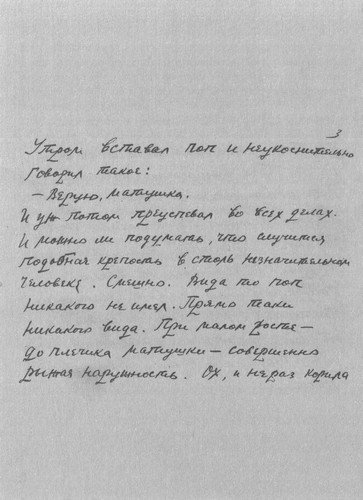 3
Утром вставал поп и неукоснительно
говорил такое:
— Верую, матушка.
И уж потом преуспевал во всех делах.
И можно ли подумать, что случится
подобная крепость в столь незначительном
человеке. Смешно. Вида то поп
никакого не имел. Прямо таки
никакого вида. При малом росте —
до плечика матушки — совершенно
рыжая наружность. Ох, и не раз корила